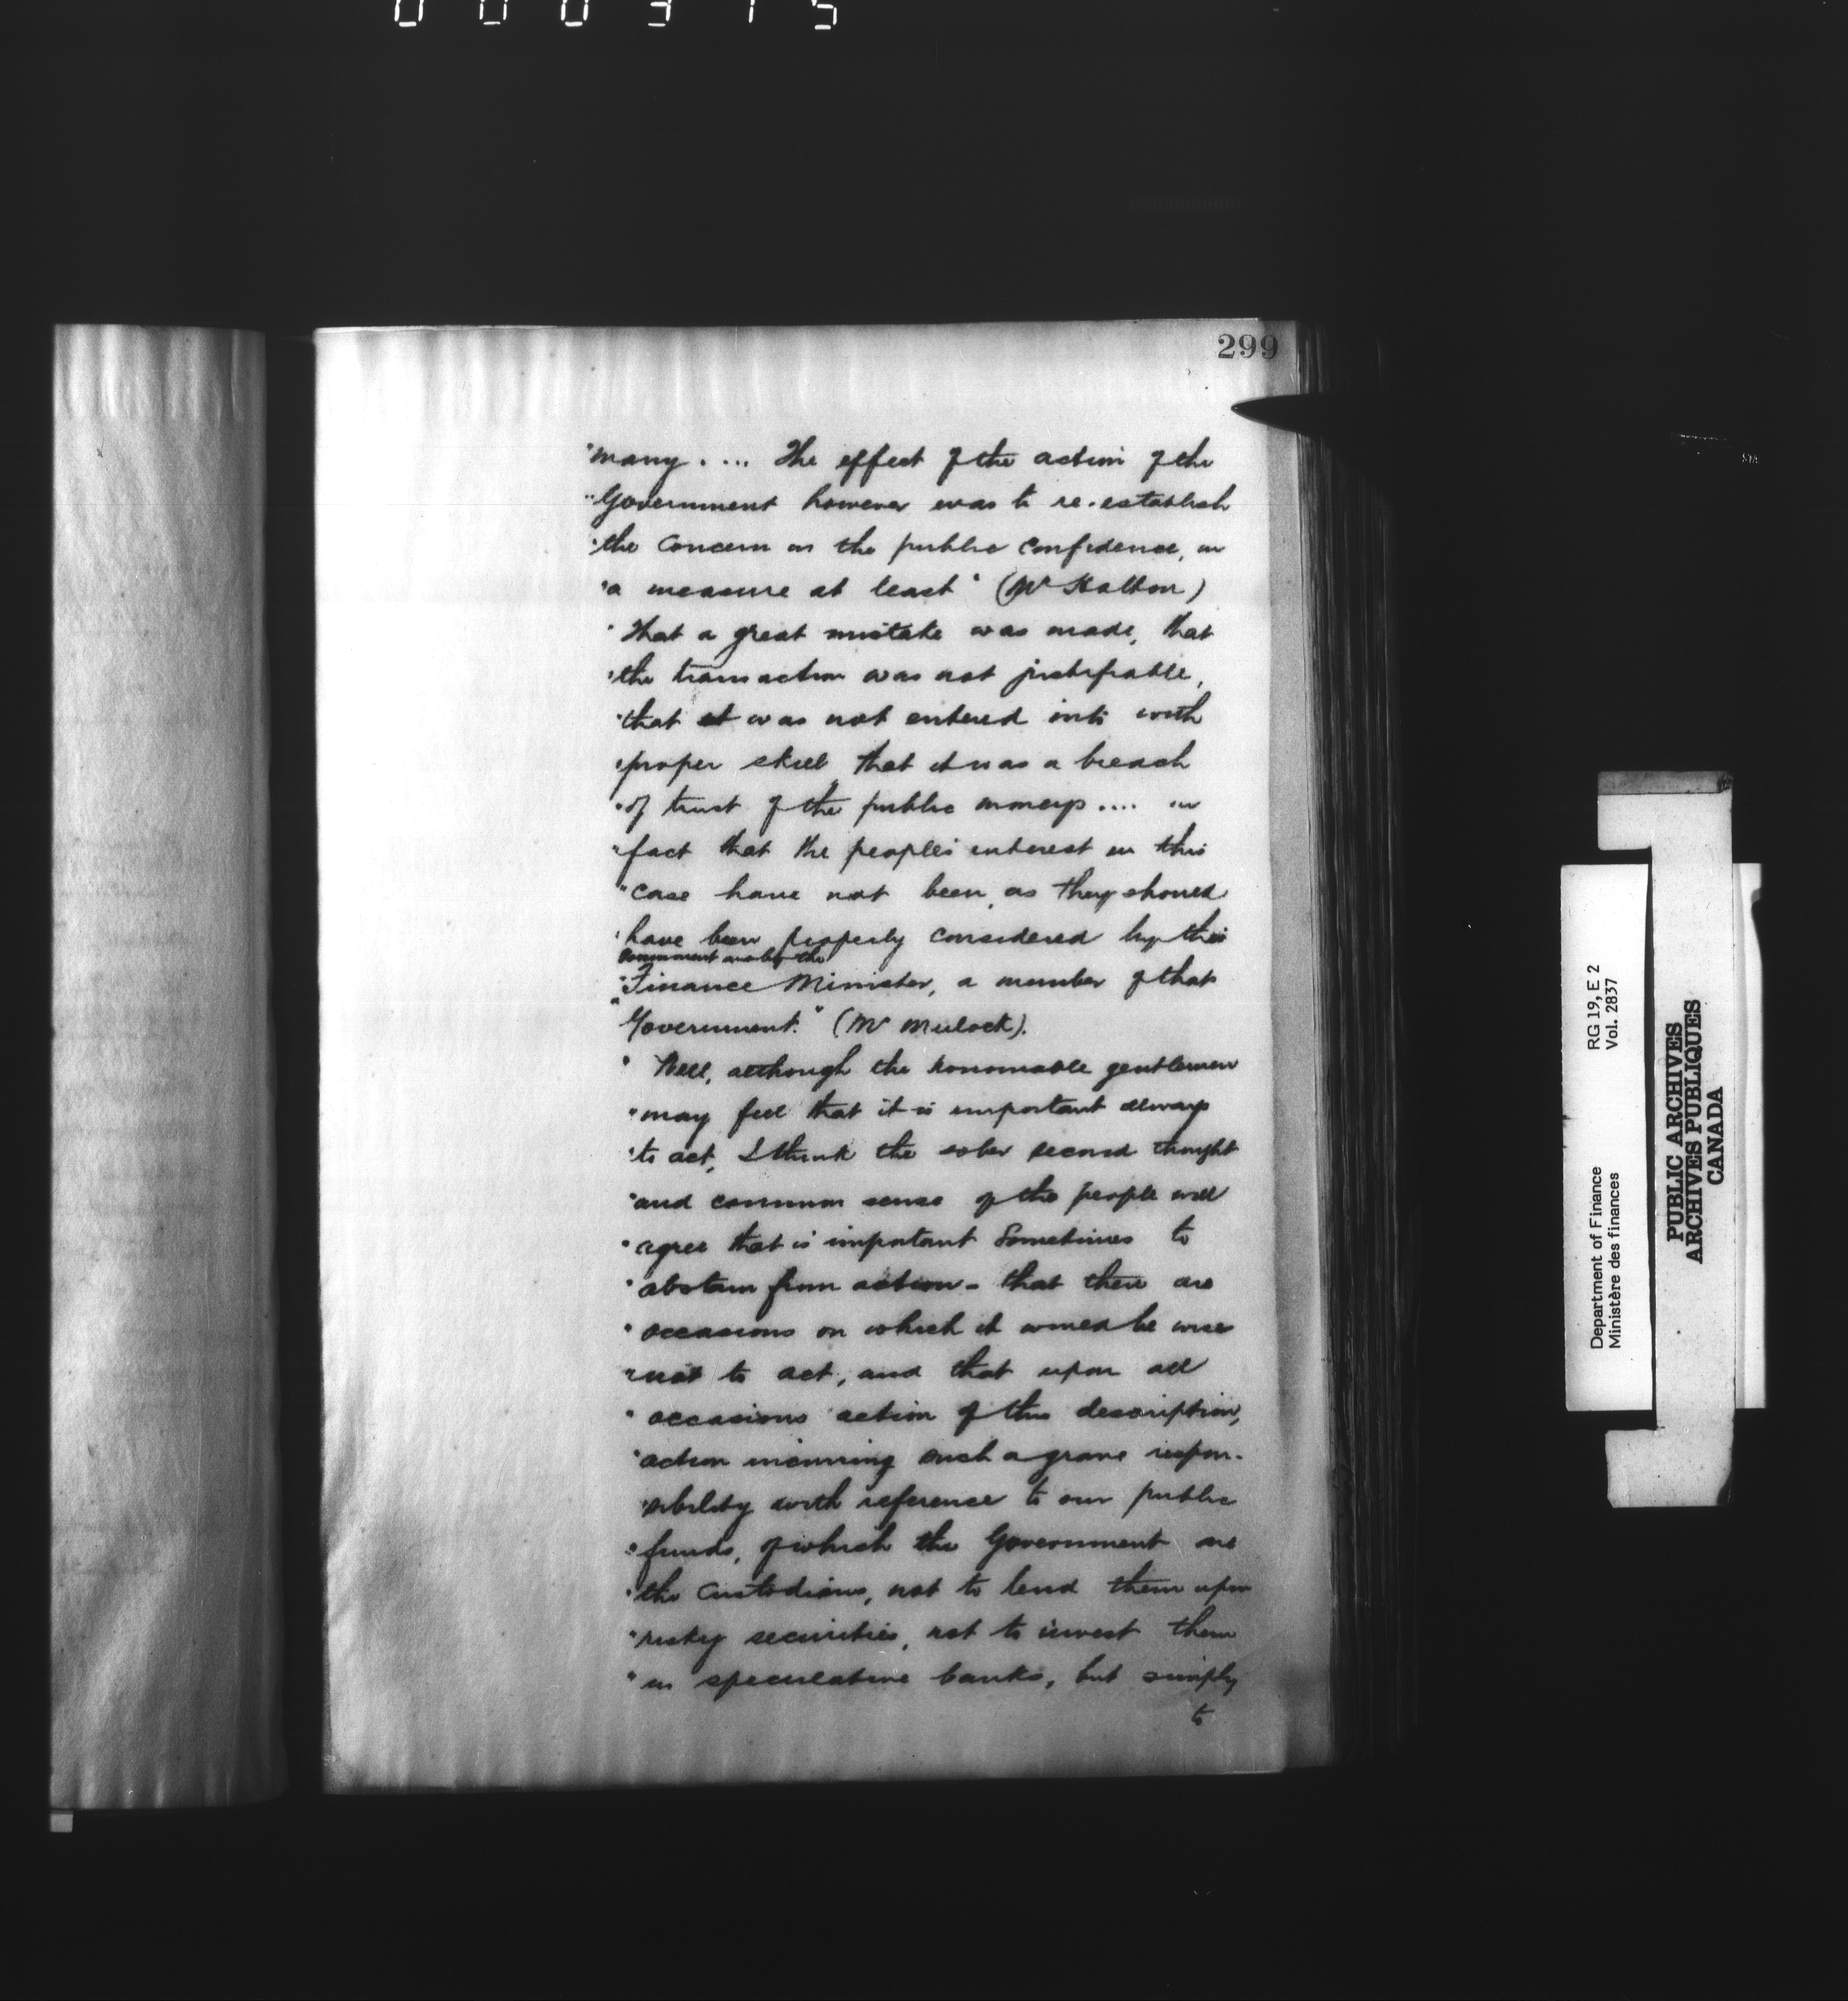 000315
299
"many . ... The effect of the action of the
"Government however was to re-establish
"the concern in the public confidence, in
"a measure at least" (Mr Halton)
"That a great mistake was made, that
"the transaction was not justifiable,
"that it was not entered into with
"proper skill that it was a breach
"of trust of the public moneys .... in
"fact that the people's interest in this
"case have not been, as they should
"have been properly considered by this
Government and by the
"Finance Minister, a member of that
"Government." (Mr Mulock).
" Well, although the honourable gentlemen
"may feel that it is important always
"to act, I think the sober second thought
"and common sense of the people will
"agree that is important Sometimes to
"abstain from action - that there are
"occasions on which it would be wise
"not to act, and that upon all
"occasions action of this description,
"action incurring such a grave respon-
"sibility with reference to our public
"funds, of which the Government are
"the Custodians, not to lend them upon
"risky securities, not to invest them
"in speculative banks, but simply
to
Department of Finance RG 19, E 2
Ministère des finances Vol. 2837
PUBLIC ARCHIVES
ARCHIVES PUBLIQUES
CANADA